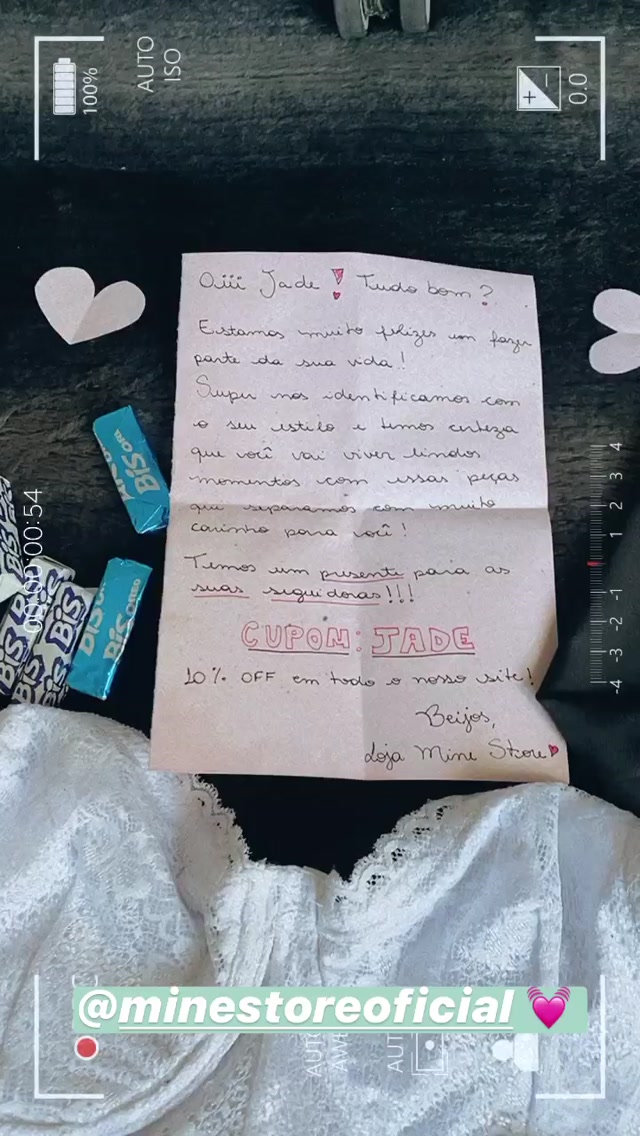 100%
AUTO
ISO
0.0
Oiii Jade! Tudo bom?
Estamos muito felizes em fazer
parte da sua vida!
Super nos identificamos com
o seu estilo e temos certeza
que você vai viver lindos
momentos com essas peças
que separamos com muito
carinho para você!
Temos um presente para as
suas seguidoras!!!
CUPOM: JADE
10% OFF em todo o nosso site!
Beijos,
Loja Mine Store
BIS
OREO
BIS
OREO
BIS
BIS
BIS
4
3
2
1
-1
-2
-3
-4
@minestoreoficial 💓
AUTO